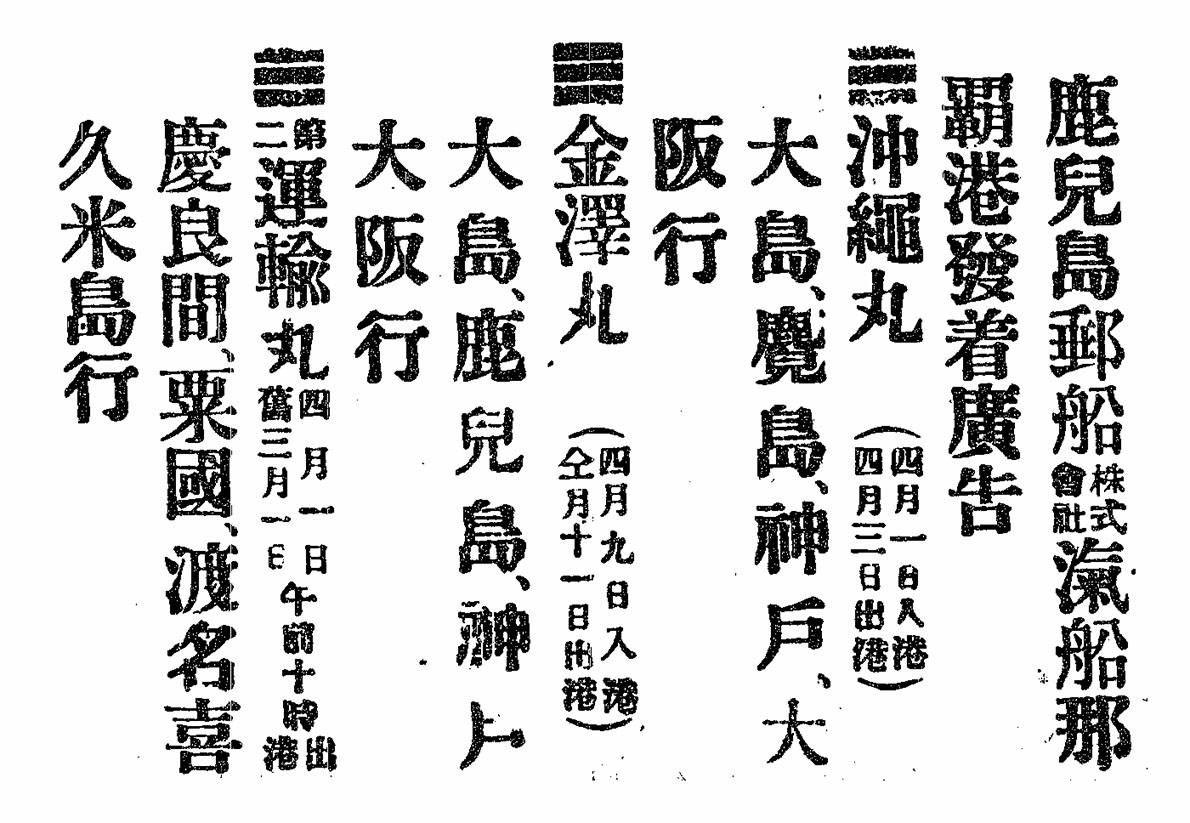 鹿兒島郵船株式會社滊船那
覇港發着廣告
☰沖繩丸(四月一日入港四月三日出港)
大島、麑島、神戶、大
阪行
☰金澤丸(四月九日入港仝月十一日出港)
大島、鹿兒島、神戶
大阪行
☰第二運輸丸四月一日舊三月一日午前十時出港
慶良間、粟國、渡名喜
久米島行